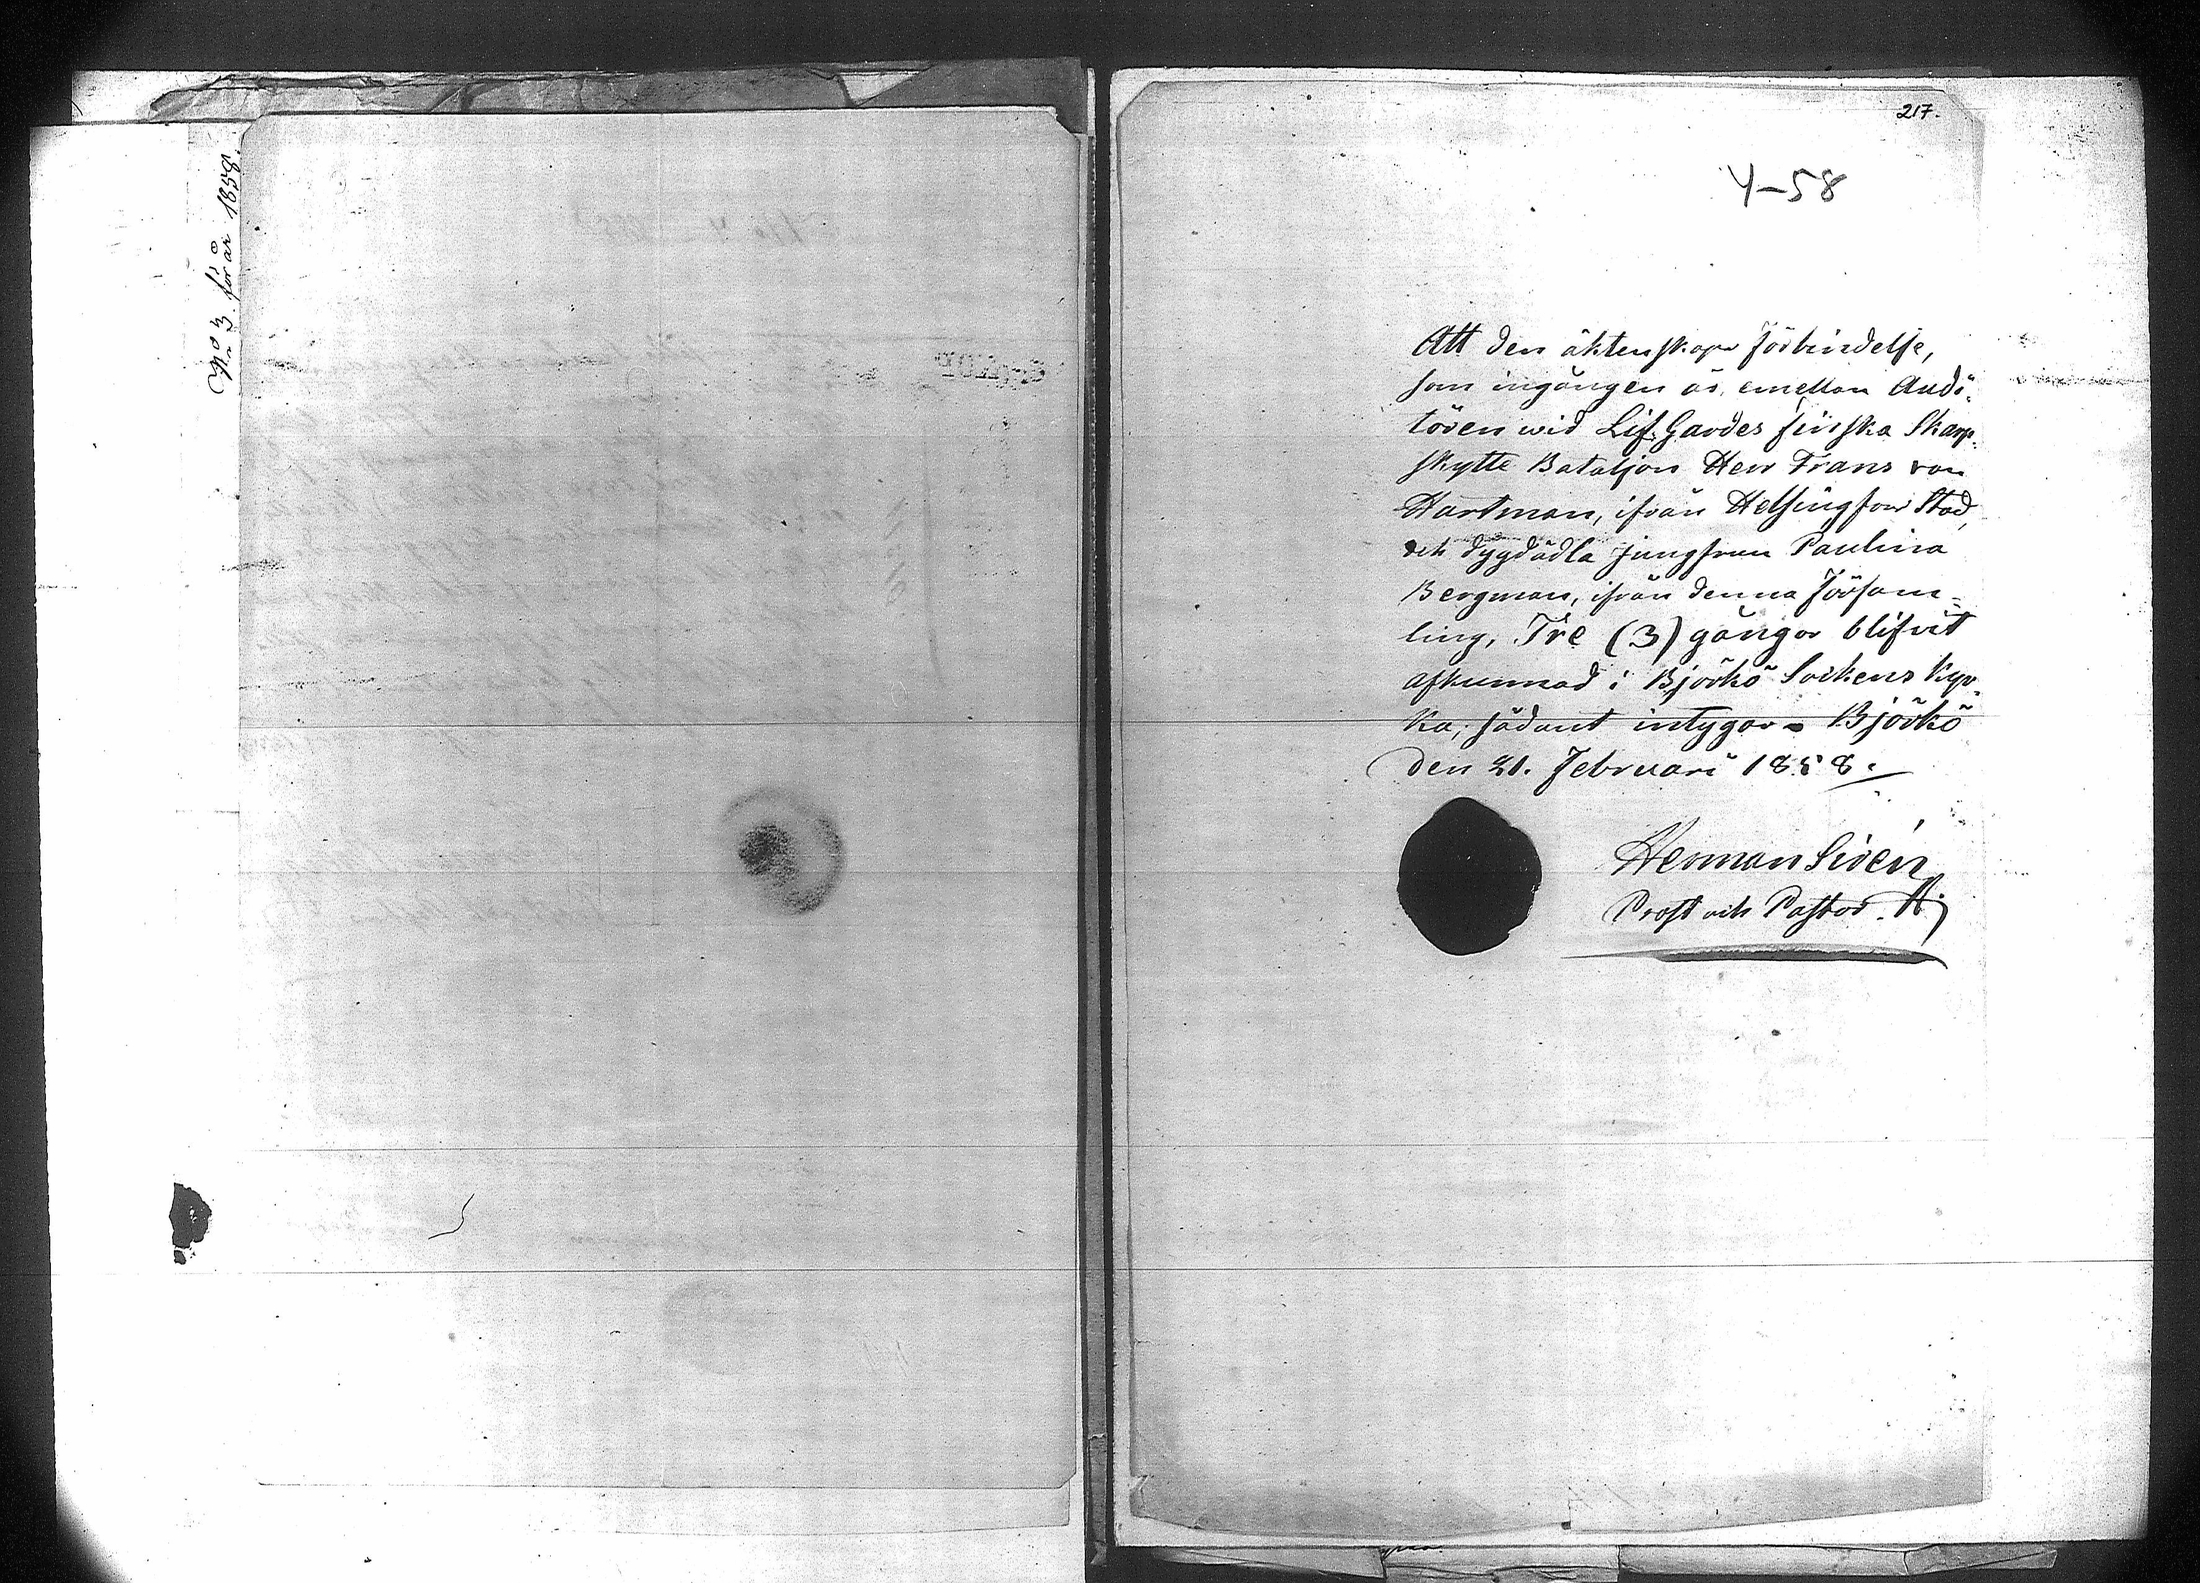 No 3. för år 1858.
217.
4-58
Att den äktenskaps förbindelse,
som ingången är, emellan Audi-
tören wid Lif-Gardes finska Skarp-
skytte Bataljon Herr Frans von
Hartman, ifrån Helsingfors Stad,
och dygdädla jungfrun Paulina
Bergman, ifrån denna församm-
ling, Tre (3) gångor blifvit
afkunnad i Björkö Sockens Kyr-
ka, sådant intygar - Björkö
den 21. Februari 1858.
Herman Sirén
Prost och Pastor.